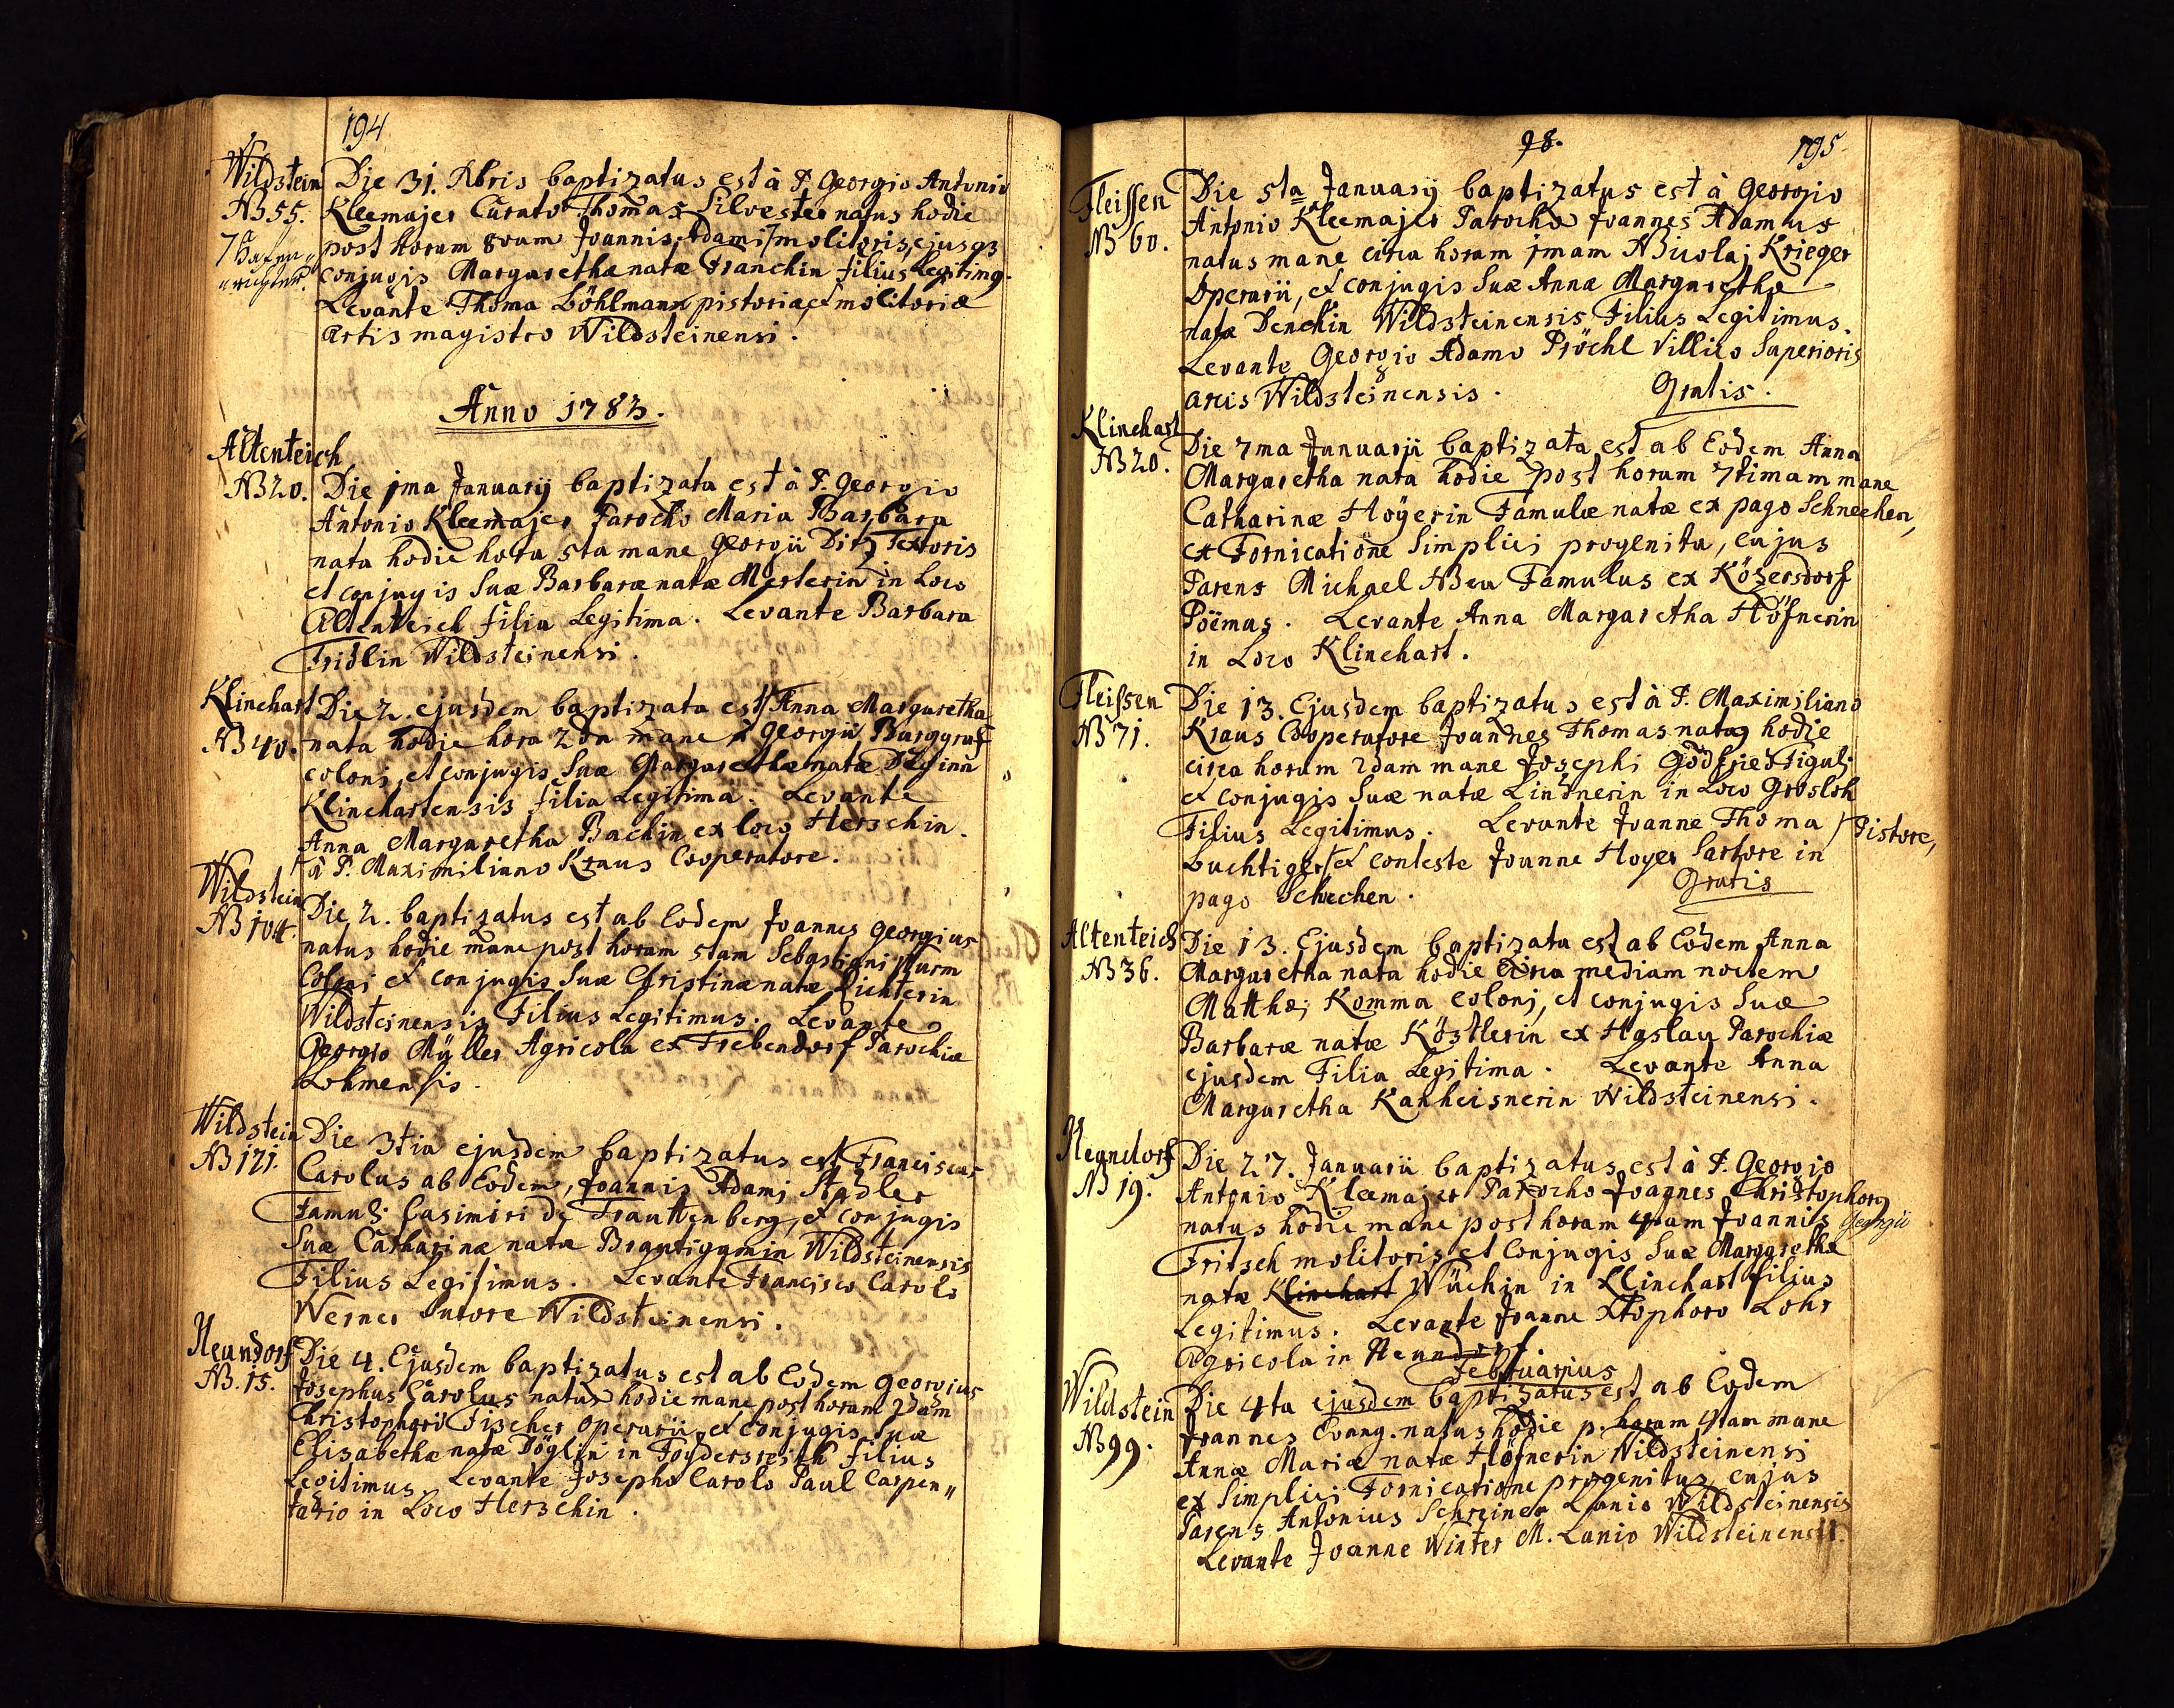 194
Wildstein
N 55.
Die 31. Xbris baptizatus est à P. Georgio Antonio
Kleemajer Curato Thomas Silvester natus hodie
post horam 8vam Joannis Adami molitoris, ejusq
conjugis Margarethæ natæ Franchin filius Legitimq.
Levante Thoma Böhlmann pistoriæ et molitoriæ
artis magistro Wildsteinensi.
Anno 1783.
Altenteich
N 20.
Die 1ma Januarij baptizata est à P. Georgio
Antonio Kleemajer Parocho Maria Barbara
nata hodie hora 5ta mane Georgii Ditz Textoris
et conjugis Suæ Barbaræ natæ Merterin in Loco
Altenteich filia Legitima. Levante Barbara
Fridlin Wildsteinensi.
Klinchart
N 40.
Die 2. ejusdem baptizata est Anna Margaretha
nata hodie hora 2da mane Georgii Burggraf
coloni, et conjugis Suæ Margarethæ natæ
Klinchartensis filia Legitima. Levante
Anna Margaretha Bachin ex loco Herschin.
à P. Maximiliano Kraus Cooperatore.
Wildstein
N 104.
Die 2. baptizatus est ab Eodem Joannes Georgius
natus hodie mane post horam 5tam Sebastiani Sturm
Coloni et conjugis Suæ Christinæ natæ Richterin
Wildsteinensis Filius Legitimus. Levante
Georgio Müller Agricola ex Trebendorf Parochiæ
Lohmensis.
Wildstein
N 121.
Die 3tia ejusdem baptizatus est Franciscus
Carolus ab Eodem, Joannis Adami Stadler
Famuli Casimiri de Trauttenberg, et conjugis
Suæ Catharinæ natæ Brautigamin Wildsteinensis
Filius Legitimus. Levante Francisco Carolo
Werner Sutore Wildsteinensi.
Neundorf
N. 15.
Die 4. Ejusdem baptizatus est ab Eodem Georgius
Josephus Carolus natus hodie mane post horam 2dam
Christophori Fischer operarii, et conjugis Suæ
Elisabethæ natæ Döglin in Foydersreith filius
Legitimus. Levante Josepho Carolo Paul Carpen„
tario in Loco Herschin.
78.
195
Fleissen
N 60.
Die 5ta Januarij baptizatus est à Georgio
Antonio Kleemajer Parocho Joannes Adamus
natus mane circa horam 1mam Nicolaj Krieger
Operarii, et conjugis Suæ Annæ Margarethæ
natæ Denchin Wildsteinensis Filius Legitimus.
Levante Georgio Adamo Pröchl Villico Superioris
arcis Wildsteinensis. Gratis.
Klinchart
N 20.
Die 7ma Januarii baptizata est ab Eodem Anna
Margaretha nata hodie post horam 7timam mane
Catharinæ Hoyerin Famulæ natæ ex pago Schnechen,
ex Fornicatione Simplici progenita, cujus
Parens Michael Neu Famulus ex Közersdorf
Poëmus. Levante Anna Margaretha Höfnerin
in Loco Klinchart.
Fleissen
N 71.
Die 13. Ejusdem baptizatus est à P. Maximiliano
Kraus Cooperatore Joannes Thomas natq hodie
circa horam 2dam mane Josephi Godfrie Figuli
et conjugis Suæ natæ Lindnerin in Loco Grosloh
Filius Legitimus. Levante Joanne Thoma
Luchtiger / Pistore, et conteste Joanne Hoyer Sartore in
pago Schechen. Gratis
Altenteich
N 36.
Die 13. Ejusdem baptizata est ab Eodem Anna
Margaretha nata hodie circa mediam noctem
Matthæi Komma colonj, et conjugis Suæ
Barbaræ natæ Köstlerin ex Haslau Parochiæ
ejusdem Filia Legitima. Levante Anna
Margaretha Kanheisnerin Wildsteinensi.
Neundorf
N 19.
Die 27. Januarii baptizatus est à P. Georgio
Antonio Kleemajer Parocho Joannes Christophorq
natus hodie mane post horam 4tam Joannis Georgii
Fritsch molitoris et Conjugis Suæ Margarethæ
natæ Klinchart Wüchin in Klinchart filius
Legitimus. Levante Joanne Xtophoro Lohr
Agricola in Neundorf.
Februarius
Wildstein
N 99.
Die 4ta ejusdem baptizatus est ab Eodem
Joannes Evang. natus hodie p. horam 4tam mane
Annæ Mariæ natæ Höfnerin Wildsteinensi
ex Simplici Fornicatione progenitus, cujus
Parens Antonius Schreiner Lanio Wildsteinensis
Levante Joanne Winter M. Lanio Wildsteinensi.